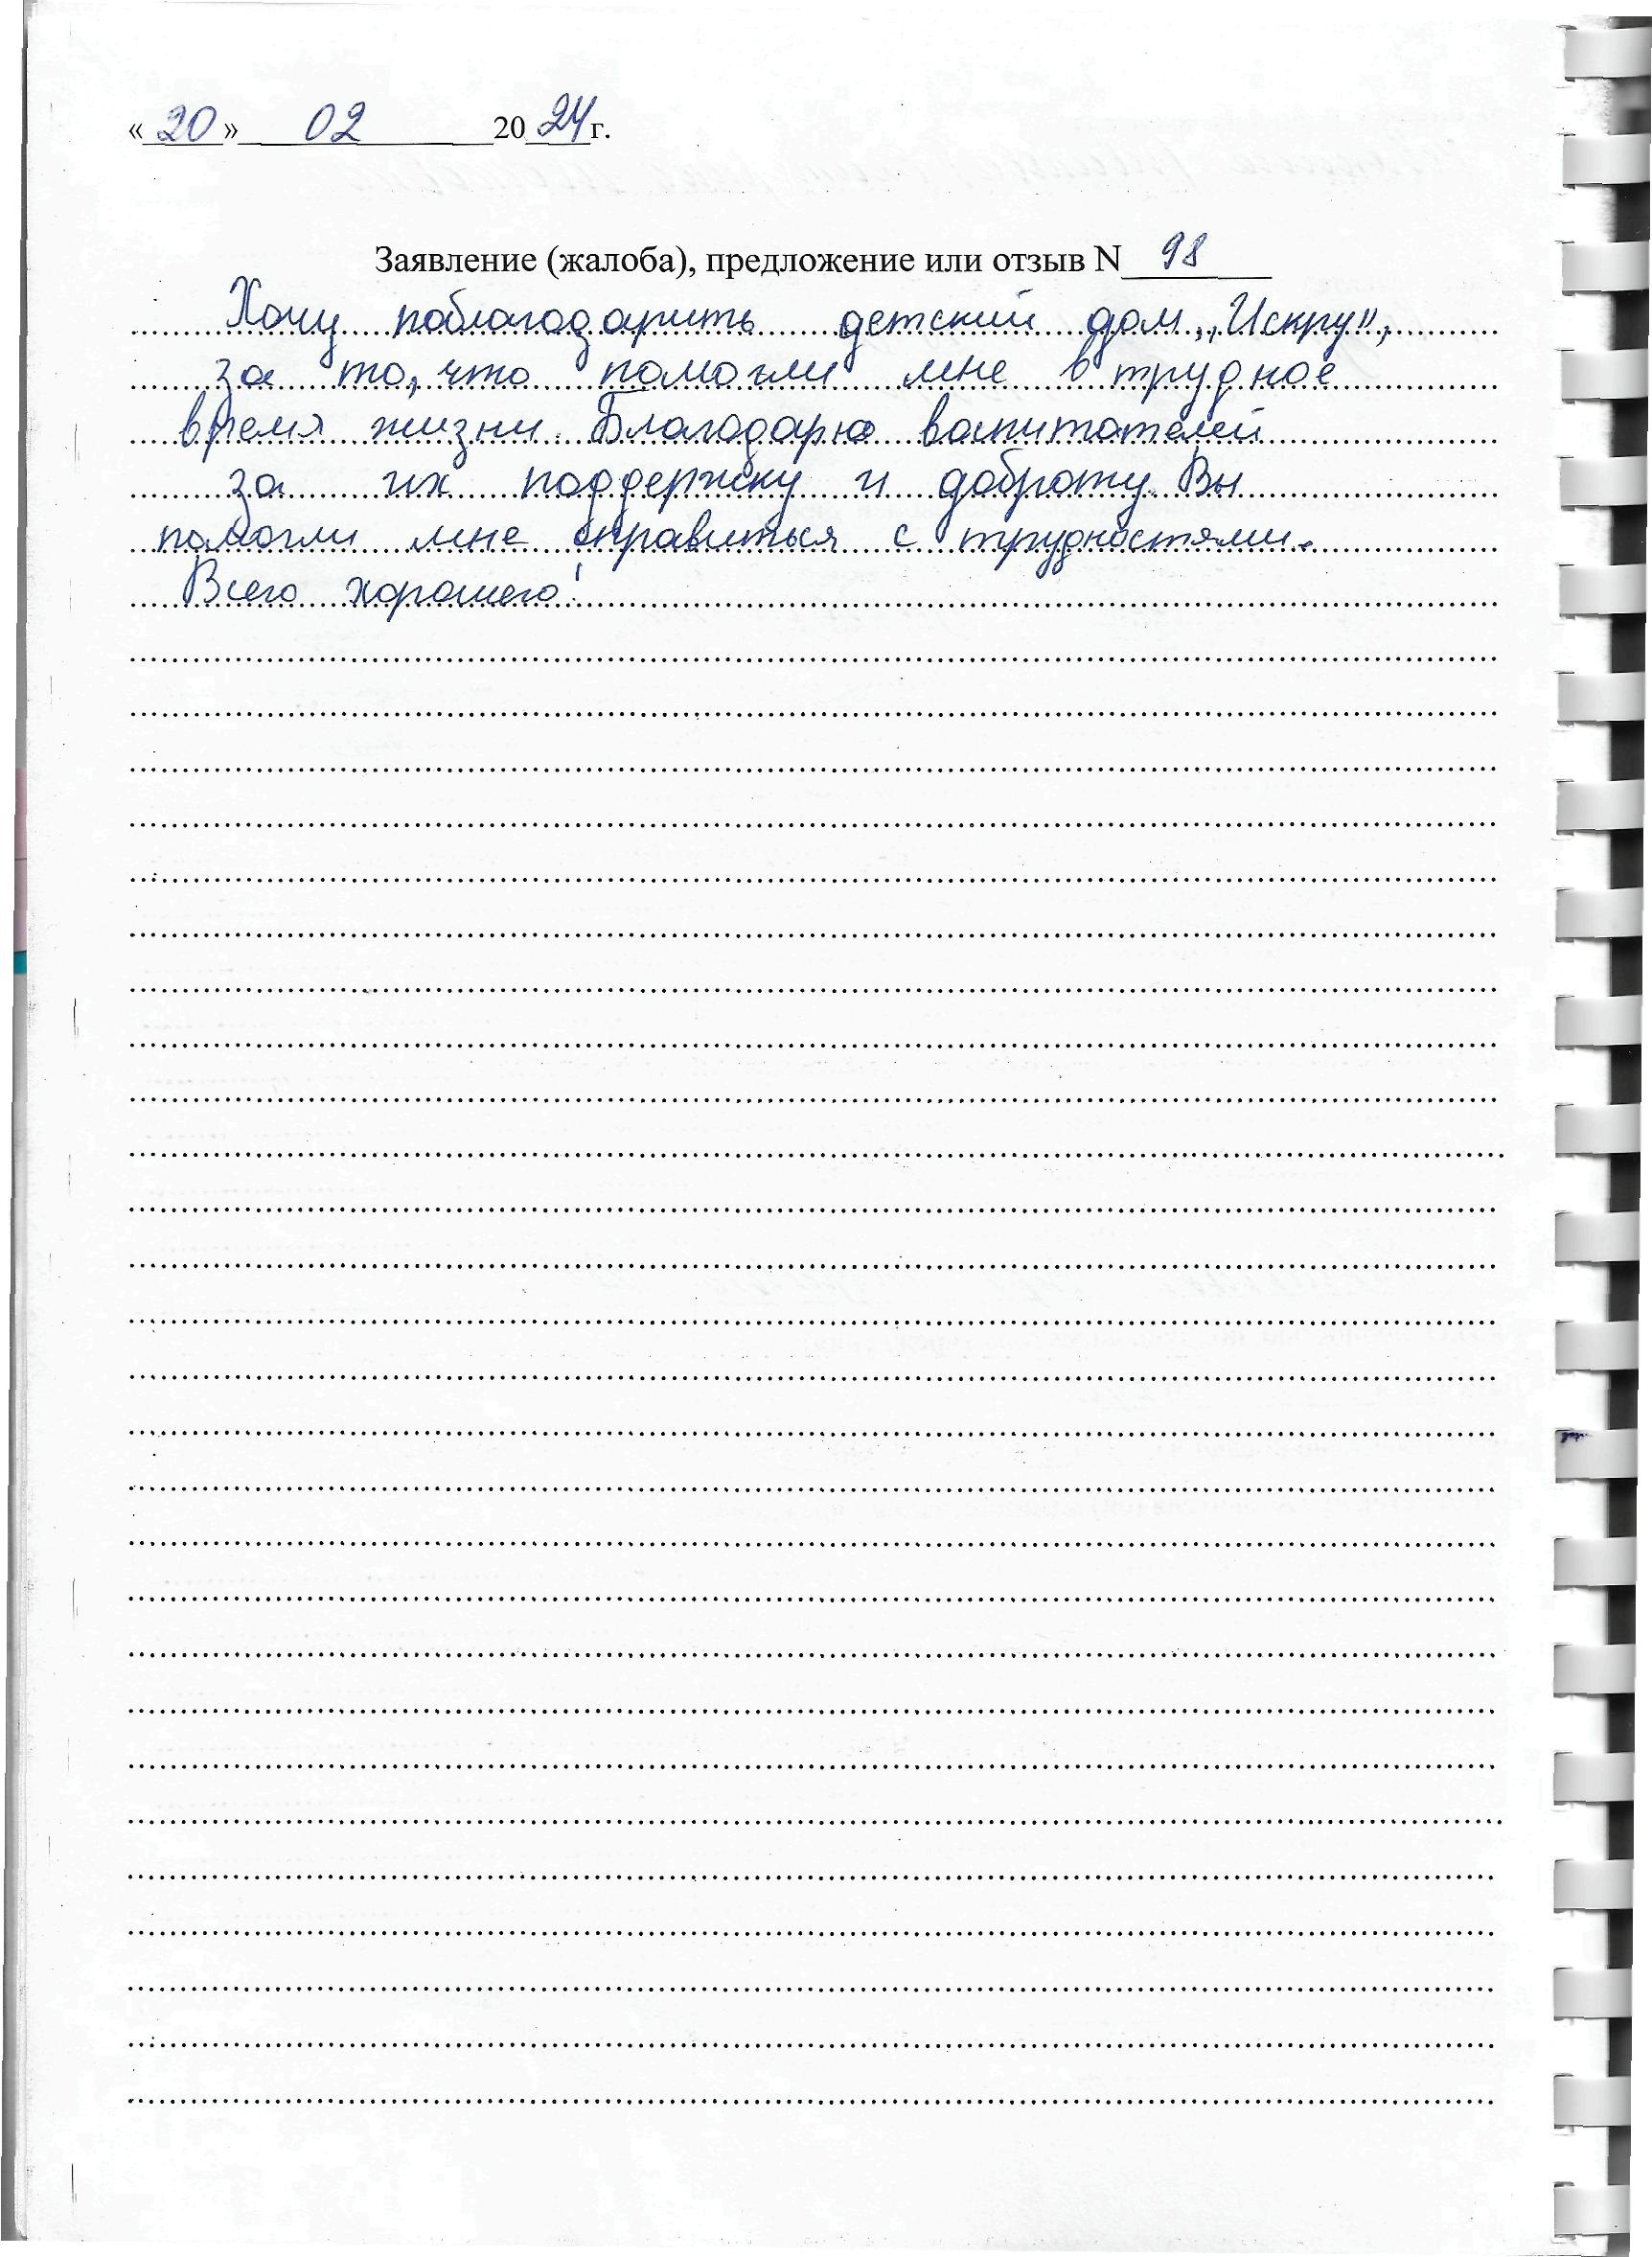 «20» 02 2024г.
Заявление (жалоба), предложение или отзыв N 98
Хочу поблагодарить детский дом „Искру",
за то, что помогли мне в трудное
время жизни. Благодарю воспитателей
за их поддержку и доброту. Вы
помогли мне справиться с трудностями.
Всего хорошего!